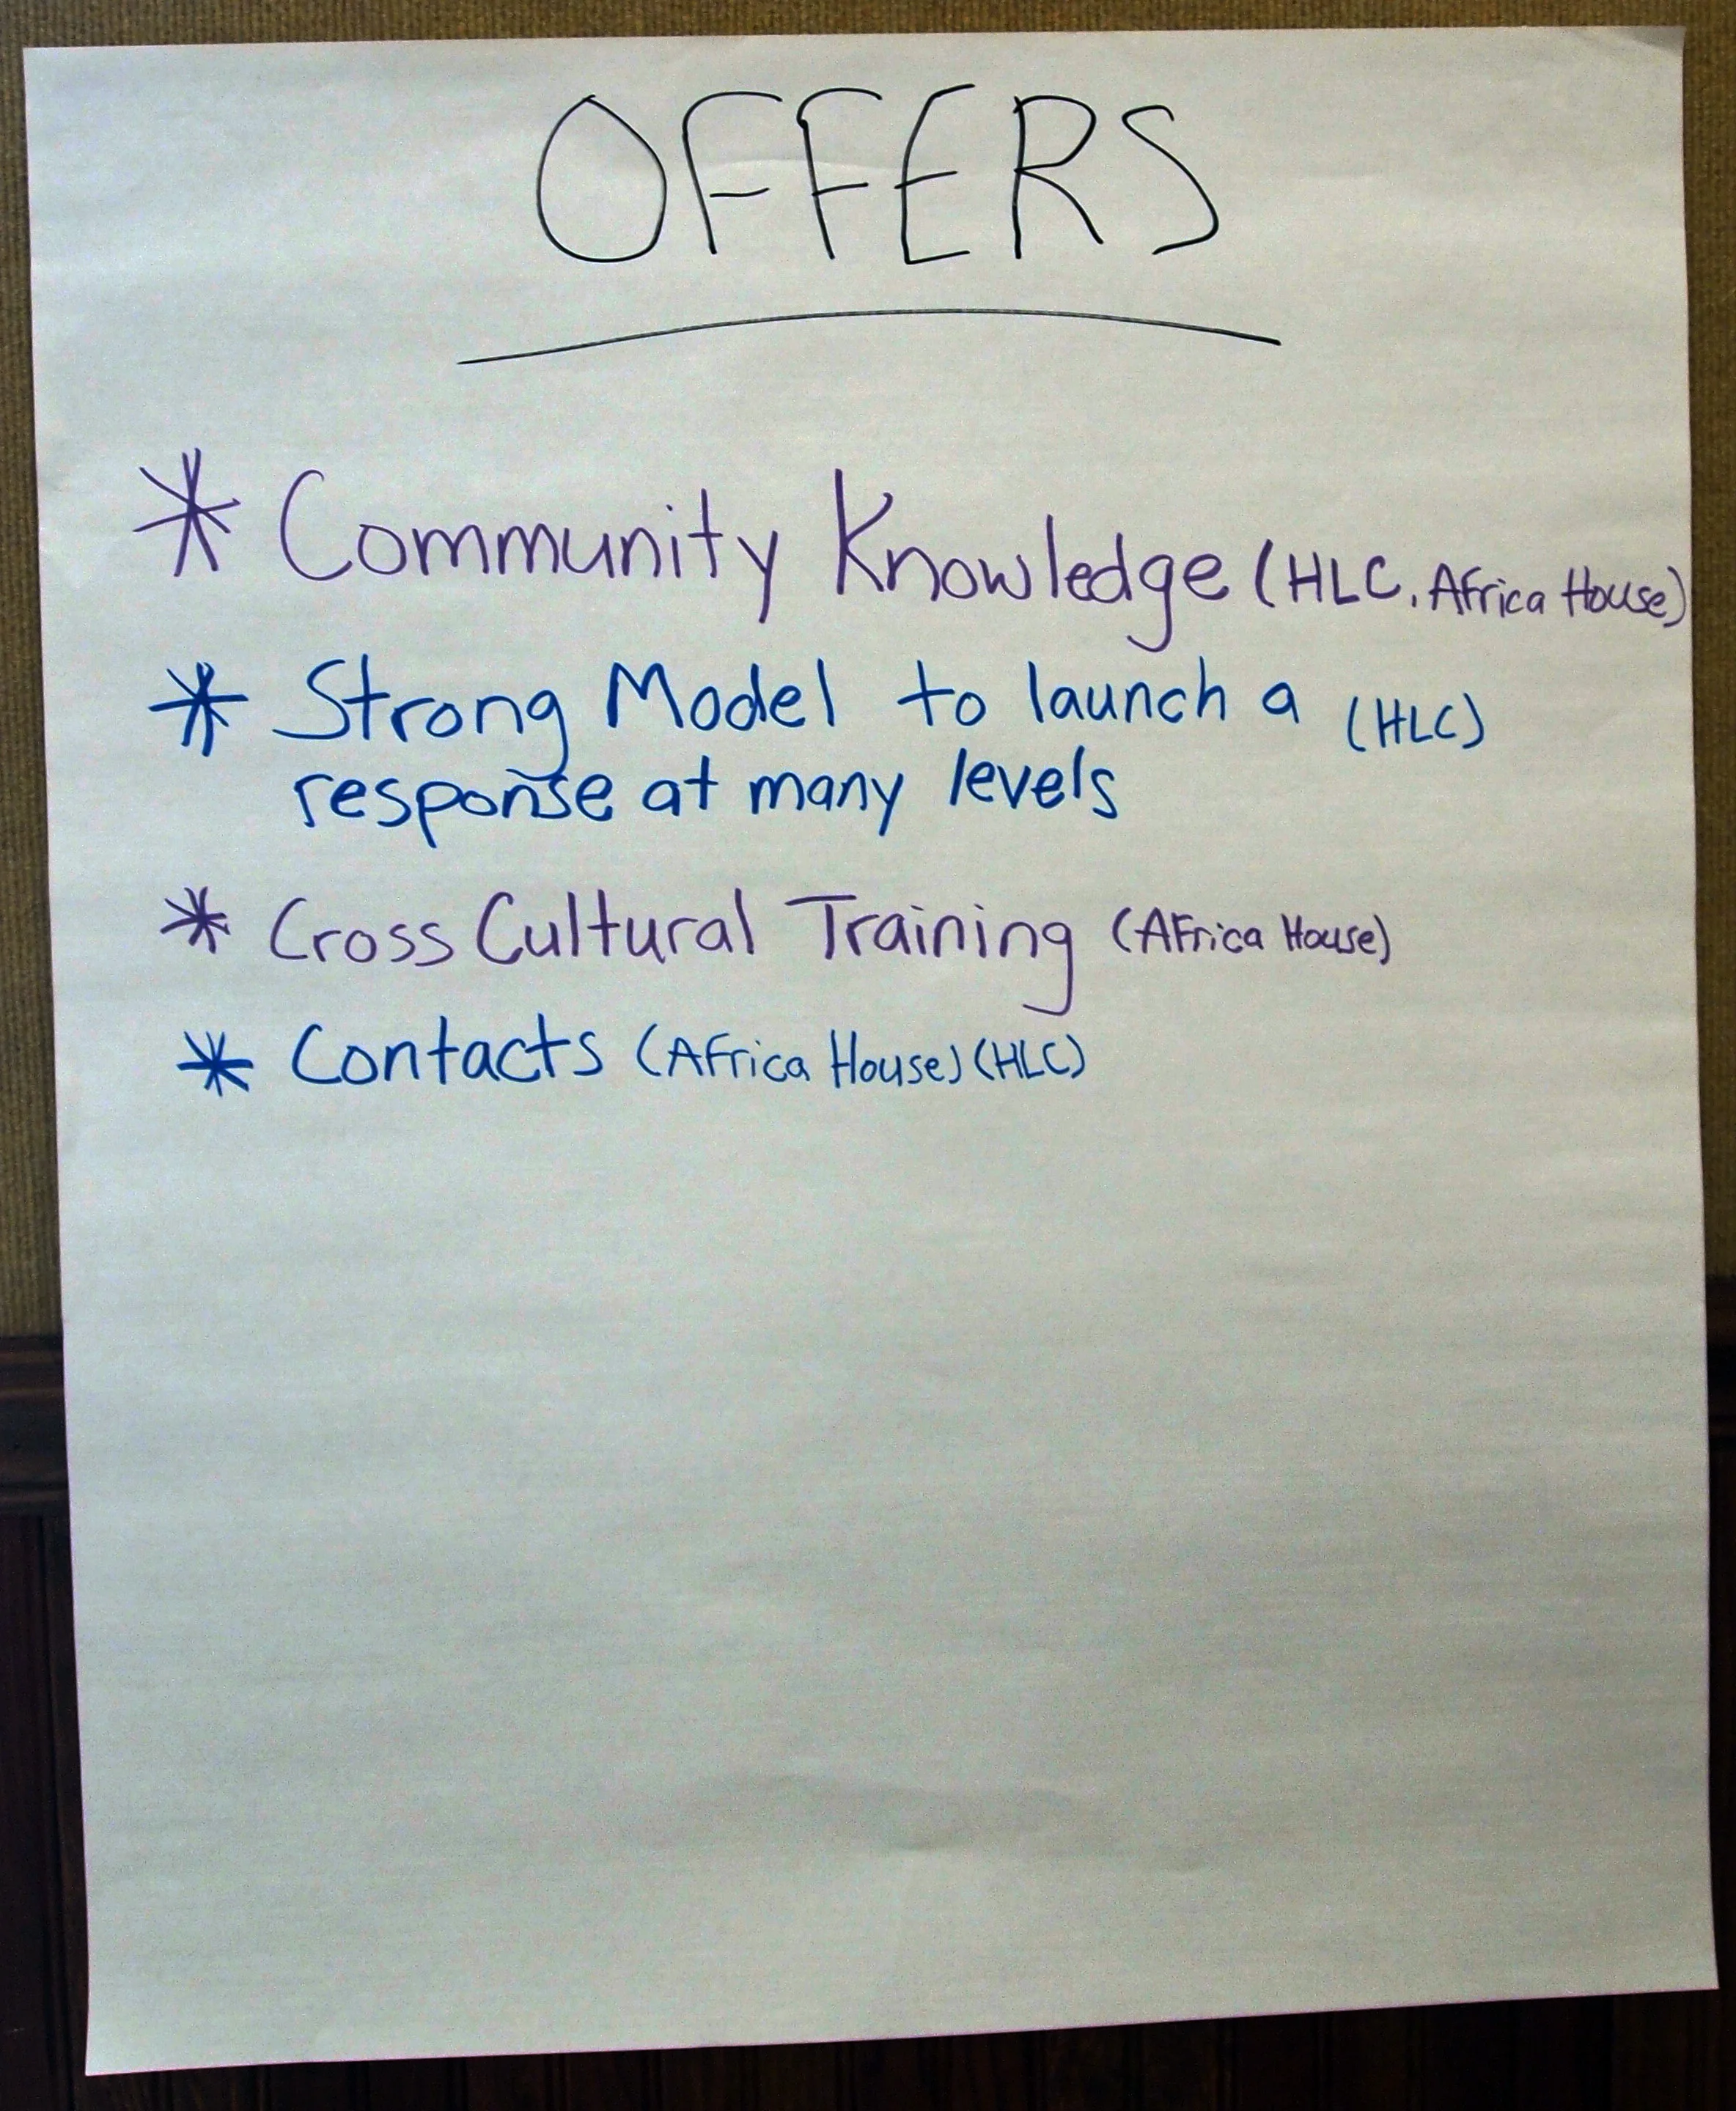 OFFERS
* Community Knowledge (HLC, Africa House)
* Strong Model to launch a (HLC)
response at many levels
* Cross Cultural Training (Africa House)
* Contacts (Africa House) (HLC)